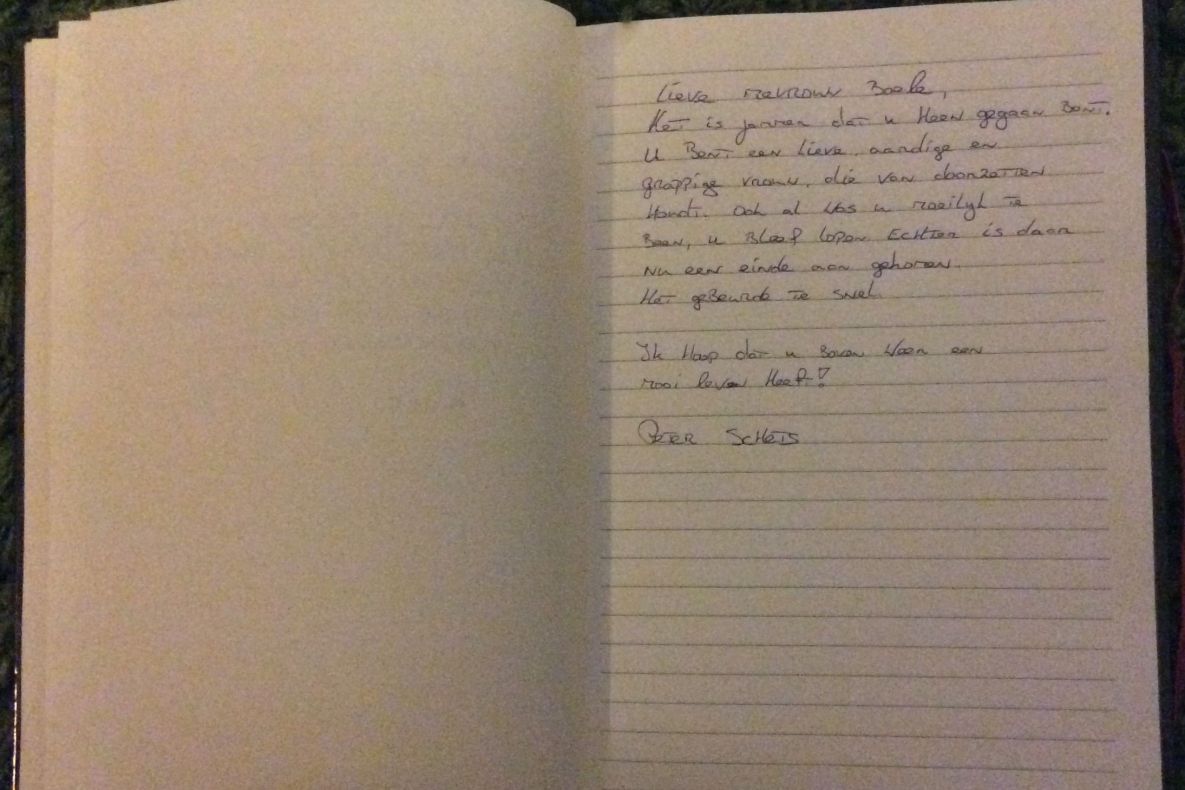 Lieve mevrouw Boele,
Het is jammer dat u Heen gegaan Bent.
U Bent een Lieve, aardige en
grappige vrouw, die van doorzetten
Houdt. Ook al was u moeilijk te
Been, u Bleef lopen. Echter is daar
nu een einde aan gekomen.
Het geBeurde te snel.
Ik Hoop dat u Boven weer een
mooi leven Heeft!
Peter